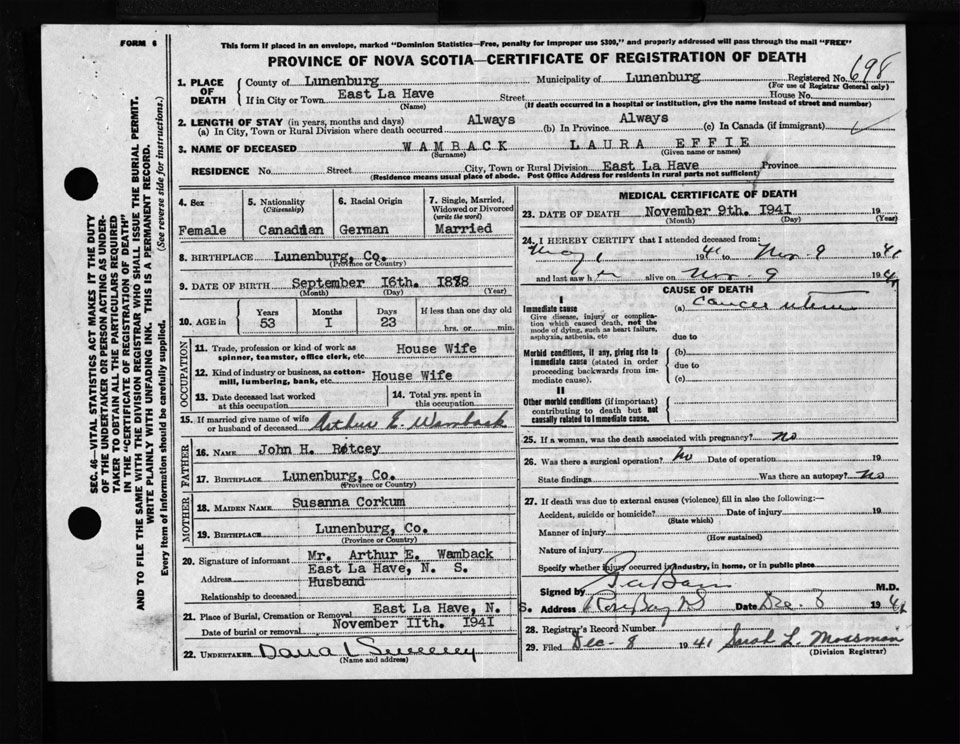 FORM 6
This form if placed in an envelope, marked "Dominion Statistics—Free, penalty for improper use $300," and properly addressed will pass through the mail "FREE"
PROVINCE OF NOVA SCOTIA—CERTIFICATE OF REGISTRATION OF DEATH
1. PLACE OF DEATH County of Lunenburg Municipality of Lunenburg Registered No. 698
(For use of Registrar General only)
If in City or Town East La Have Street House No.
(Name) (If death occurred in a hospital or institution, give the name instead of street and number)
2. LENGTH OF STAY (in years, months and days)
(a) In City, Town or Rural Division where death occurred Always (b) In Province Always (c) In Canada (if immigrant)
3. NAME OF DECEASED WAMBACK LAURA EFFIE
(Surname) (Given name or names)
RESIDENCE No. Street City, Town or Rural Division East La Have Province
(Residence means usual place of abode. Post Office Address for residents in rural parts not sufficient)
4. Sex 5. Nationality (Citizenship) 6. Racial Origin 7. Single, Married, Widowed or Divorced (write the word)
Female Canadian German Married
8. BIRTHPLACE Lunenburg, Co.
(Province or Country)
9. DATE OF BIRTH September 16th. 1888
(Month) (Day) (Year)
10. AGE in Years Months Days If less than one day old
53 I 23 hrs. or min.
OCCUPATION
11. Trade, profession or kind of work as spinner, teamster, office clerk, etc. House Wife
12. Kind of industry or business, as cotton-mill, lumbering, bank, etc. House Wife
13. Date deceased last worked at this occupation 14. Total yrs. spent in this occupation
15. If married give name of wife or husband of deceased Arthur E. Wamback
FATHER
16. NAME John H. Ritcey
17. BIRTHPLACE Lunenburg, Co.
(Province or Country)
MOTHER
18. MAIDEN NAME Susanna Corkum
19. BIRTHPLACE Lunenburg, Co.
(Province or Country)
20. Signature of informant Mr. Arthur E. Wamback
Address East La Have, N. S.
Relationship to deceased Husband
21. Place of Burial, Cremation or Removal East La Have, N. S.
Date of burial or removal November 11th. 1941
22. UNDERTAKER Dana L Sweeney
(Name and address)
MEDICAL CERTIFICATE OF DEATH
23. DATE OF DEATH November 9th. 1941 19
(Month) (Day) (Year)
24. I HEREBY CERTIFY that I attended deceased from:
May 1 1941 to Nov. 9 1941
and last saw h er alive on Nov. 9 1941
CAUSE OF DEATH
I
Immediate cause (a) cancer uterus
Give disease, injury or complication which caused death, not the mode of dying, such as heart failure, asphyxia, asthenia, etc due to
Morbid conditions, if any, giving rise to immediate cause (stated in order proceeding backwards from immediate cause). (b)
due to
(c)
II
Other morbid conditions (if important) contributing to death but not causally related to immediate cause.
25. If a woman, was the death associated with pregnancy? no
26. Was there a surgical operation? no Date of operation 19
State findings Was there an autopsy? no
27. If death was due to external causes (violence) fill in also the following:—
Accident, suicide or homicide? Date of injury 19
(State which)
Manner of injury
(How sustained)
Nature of injury
Specify whether injury occurred in industry, in home, or in public place
Signed by M.D.
Address Rose Bay NS Date Dec. 3 1941
28. Registrar's Record Number
29. Filed Dec- 8 1941 Sarah L. Mossman
(Division Registrar)
SEC. 46—VITAL STATISTICS ACT MAKES IT THE DUTY
OF THE UNDERTAKER OR PERSON ACTING AS UNDER-
TAKER TO OBTAIN ALL THE PARTICULARS REQUIRED
IN THE "CERTIFICATE OF REGISTRATION OF DEATH"
AND TO FILE THE SAME WITH THE DIVISION REGISTRAR WHO SHALL ISSUE THE BURIAL PERMIT.
WRITE PLAINLY WITH UNFADING INK. THIS IS A PERMANENT RECORD.
Every item of information should be carefully supplied. (See reverse side for instructions.)